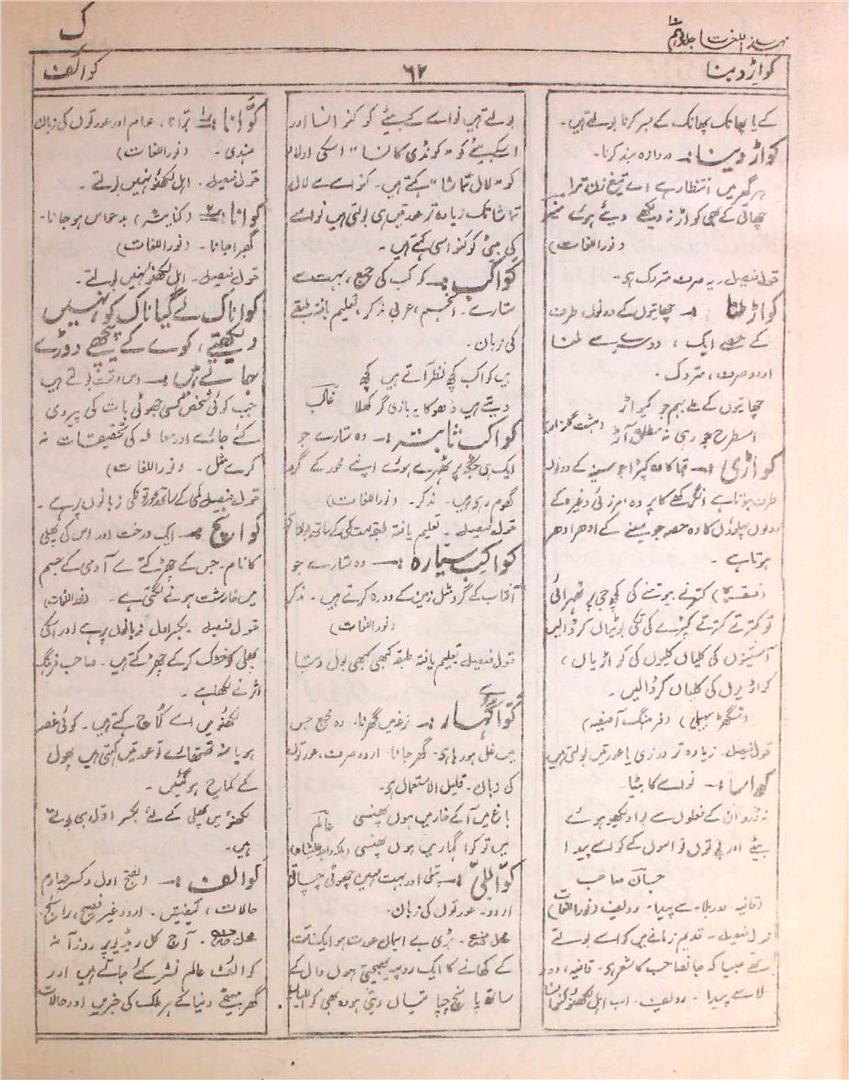 مہذب اللغات جلد دہم
ک
کواڑ دینا
۶۲
کوالف
کے یا پھانک پھانک کے بسر کرنا بولتے ہیں۔
کواڑ دینا :۔ دروازہ بند کرنا۔
ہر گھر میں انتظار ہے اے تیغ زن ترا
چھاتی کے بھی کواڑ نہ دیکھے دیئے ہوئے منیر
(نور اللغات)
قول فیصل۔ یہ صرف متروک ہے۔
کواڑ ملنا :۔ چھاتیوں کے دونوں طرف
کے حصے ایک دوسرے سے ملنا
اردو صرف، متروک۔
چھاتیوں کے ملے بہم جو کیواڑ
اسطرح جو رہی نہ مطلق آڑ
کواڑی :۔ قبا کا وہ کپڑا جو سینہ کے دونوں
طرف ہوتا ہے انگرکھے کا پردہ مرزئی وغیرہ کے
دونوں پہلوؤں کا وہ حصہ جو سینے کے ادھر ادھر
ہوتا ہے۔
(فقرہ) کترنے بیوتنے کی کچھ جی پر ٹھہرائی
تو کترتے کترتے کپڑے کی تکی بوٹیاں کر ڈالیں
آستینوں کی کلیاں کلیوں کی کواڑیاں،
کواڑیوں کی کلیاں کر ڈالیں۔
(سگھڑ سہیلی) (فرہنگ آصفیہ)
قول فیصل۔ زیادہ تر درزی یا عورتیں بولتی ہیں
کواسا :۔ نواسے کا بیٹا۔
بیٹے اور پوتوں نواسوں کے کواسے پیدا
جان صاحب
قول فیصل۔ قدیم زمانے میں کواسے بولتے
تھے جیسا کہ جانصاحب کا شعر ہے۔ قافیہ، دو
لاسے پیدا۔ ردیف۔ اب اہل لکھنؤ کنواسا
بولتے ہیں نواسے کے بیٹے کو کنواسا اور
اسکے بیٹے کو "کونڈی کا نسا" اسکی اولاد
کو "لال تماشا" کہتے ہیں۔ کنواسے سے لال
تماشا تک زیادہ تر عورتیں ہی بولتی ہیں نواسے
کی بیٹی کو کنواسی کہتے ہیں۔
کواکب :۔ کوکب کی جمع، بہت سے
ستارے۔ انجم، عربی مذکر، تعلیم یافتہ طبقے
کی زبان۔
ہیں کواکب کچھ نظر آتے ہیں کچھ
دیتے ہیں دھوکا یہ بازی گر کھلا غالب
کواکب ثابتہ :۔ وہ ستارے جو
ایک ہی جگہ پر ٹھہرے ہوئے اپنے محور کے گرد
گھوم رہے ہیں۔ مذکر۔ (نور اللغات)
قول فیصل۔ تعلیم یافتہ طبقہ
کواکب سیارہ :۔ وہ ستارے جو
آفتاب کے گرد مثل زمین کے دورہ کرتے ہیں۔ مذکر
(نور اللغات)
قول فیصل تعلیم یافتہ طبقہ کبھی کبھی بول دیتا
ہے
کوا گہار :۔ زغے میں گھرنا۔ وہ مجمع جس
میں غل ہو رہا ہے۔ گھر جانا۔ اردو صرف، عورتوں
کی زبان۔ قلیل الاستعمال ہے۔
باغ میں آکے خار میں ہوں پھنسی عالم
میں تو کوا گہار میں ہوں پھنسی
کوا للی :۔ پتلی اور بہت مہین چھوٹی چپاتی
اردو۔ عورتوں کی زبان۔
محل صرف۔ بڑی بے ایمان عورت ہو ایک وقت
کے کھانے کا ایک روپیہ بھیجتی ہوں دال کے
ساتھ پانچ چپاتیاں دیتی ہو وہ بھی کوا للی
کوّانا :۔ بڑانا۔ عام اور عورتوں کی زبان
ہندی۔ (نور اللغات)
قول فیصل۔ اہل لکھنؤ نہیں بولتے۔
کوانا :۔ (کنایتہً) بدحواس ہو جانا۔
گھبرا جانا۔ (نور اللغات)
قول فیصل۔ اہل لکھنؤ نہیں بولتے۔
کوا ناک لے گیا ناک کو نہیں
دیکھتے، کوے کے پیچھے دوڑے
جاتے ہیں :۔ اس وقت بولتے ہیں
جب کوئی شخص کسی جھوٹی بات کی پیروی
کئے جائے اور معاملہ کی تحقیقات نہ
کرے مثل۔ (نور اللغات)
قول فیصل کمی کے ساتھ عورتوں کی زبانوں پر ہے۔
کوانچ :۔ ایک درخت اور اس کی پھلی
کا نام۔ جس کے چھڑکنے سے آدمی کے جسم
میں خارش ہونے لگتی ہے۔ (نور اللغات)
قول فیصل۔ بکسر اول زبانوں پر ہے اور اسکی
پھلی کو خشک کر کے چھڑکتے ہیں۔ صاحب فرہنگ
اثر نے لکھا ہے۔
لکھنؤ میں اسے کماچ کہتے ہیں۔ کوئی غصہ
ہو یا منہ تھتھائے تو عورتیں کہتی ہیں پھول
کے کماچ ہو گئیں۔
لکھنؤ میں پھلی کے لئے بکسر اول ہی بولتے
ہیں۔
کوالف :۔ (بفتح اول و کسر چہارم
حالات، کیفیتیں۔ اردو غیر فصیح، رائج۔
محل صرف۔ آج کل ریڈیو پر روز آنہ
کوالف عالم نشر کئے جاتے ہیں اور
گھر بیٹھے دنیا کے ہر ملک کی خبریں اور حالات